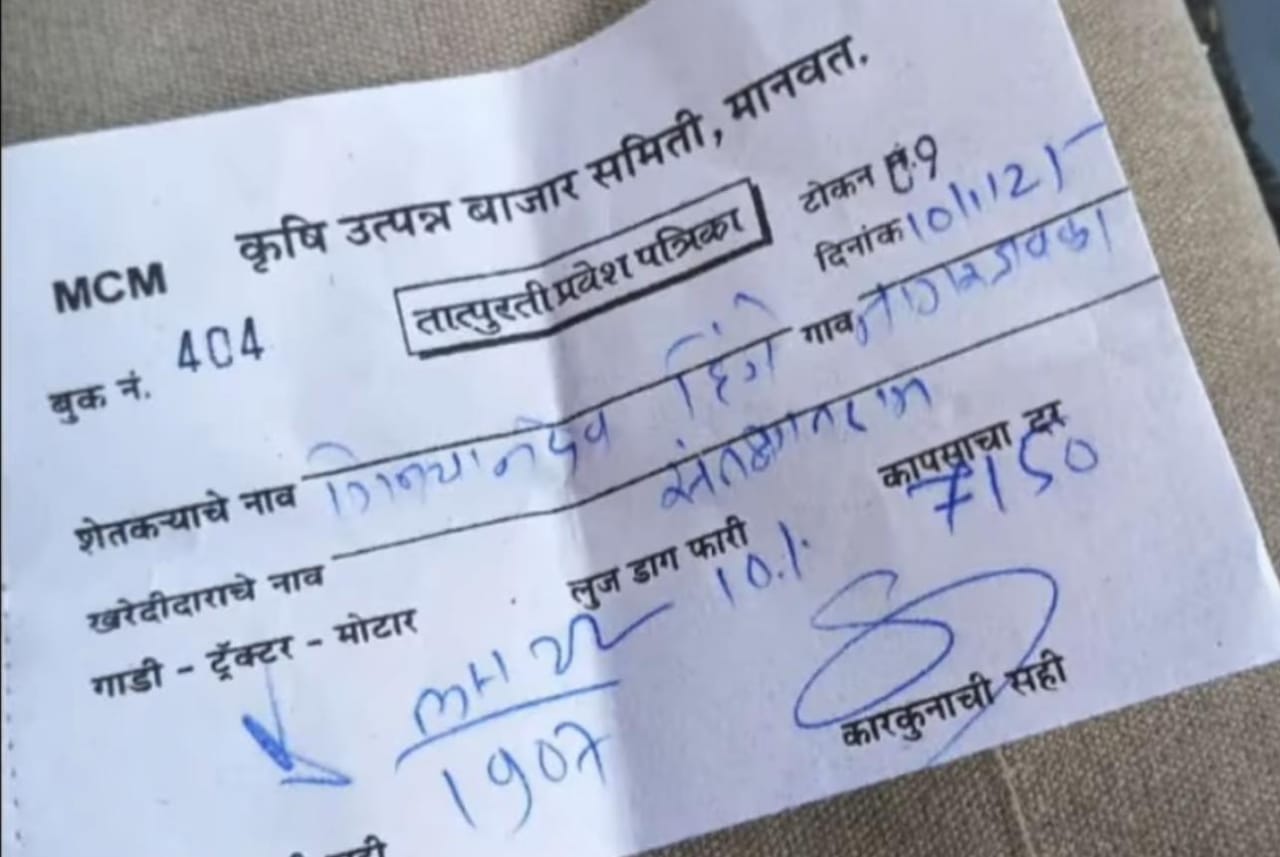 कृषि उत्पन्न बाजार समिती, मानवत.
MCM
तात्पुरती प्रवेश पत्रिका
टोकन नं. 9
बुक नं. 404
दिनांक 10/1/25
शेतकऱ्याचे नाव हिंगे गाव
खरेदीदाराचे नाव
कापसाचा दर
7150
गाडी - ट्रॅक्टर - मोटार
लुज डाग फारी
10%
MH 22
1907
कारकुनाची सही